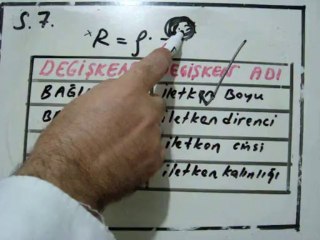 S. 7.
* R = ρ. -
DEĞİŞKEN DEĞİŞKEN ADI
BAĞ iletken Boyu
iletken direnci
iletken cinsi
iletken kalınlığı